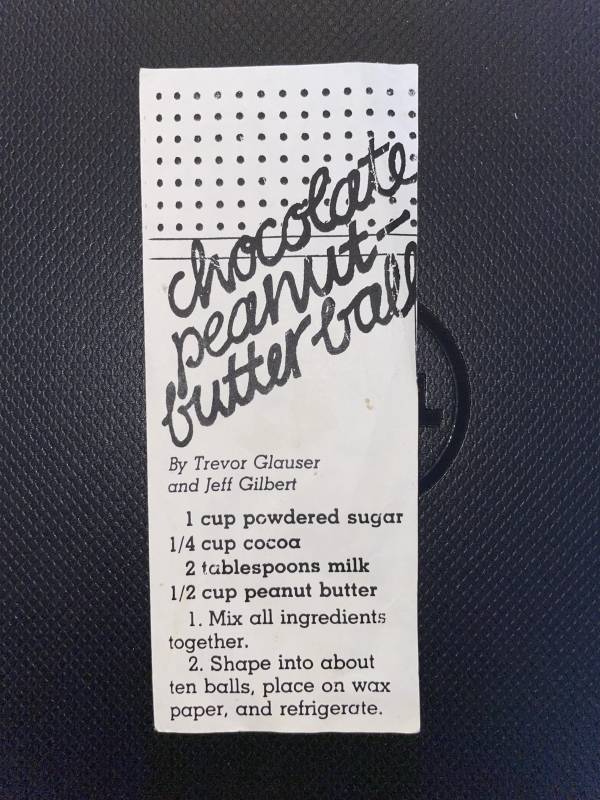 chocolate
peanut-
butter ball
By Trevor Glauser
and Jeff Gilbert
1 cup powdered sugar
1/4 cup cocoa
2 tablespoons milk
1/2 cup peanut butter
1. Mix all ingredients
together.
2. Shape into about
ten balls, place on wax
paper, and refrigerate.